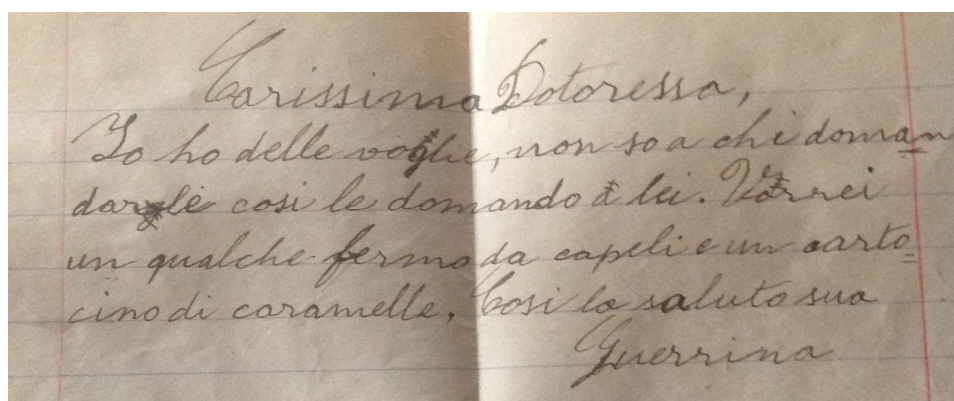 Carissima Dotoressa,
Io ho delle voglie, non so a chi doman
darle cosi le domando a lei. Vorrei
un qualche fermo da capeli e un carto=
cino di caramelle. Cosi la saluto sua
Guerrina